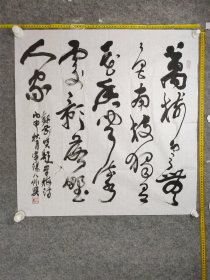 萬樹寒無
色南枝獨有
花香聞流水
處影落野
人家
丙申秋月